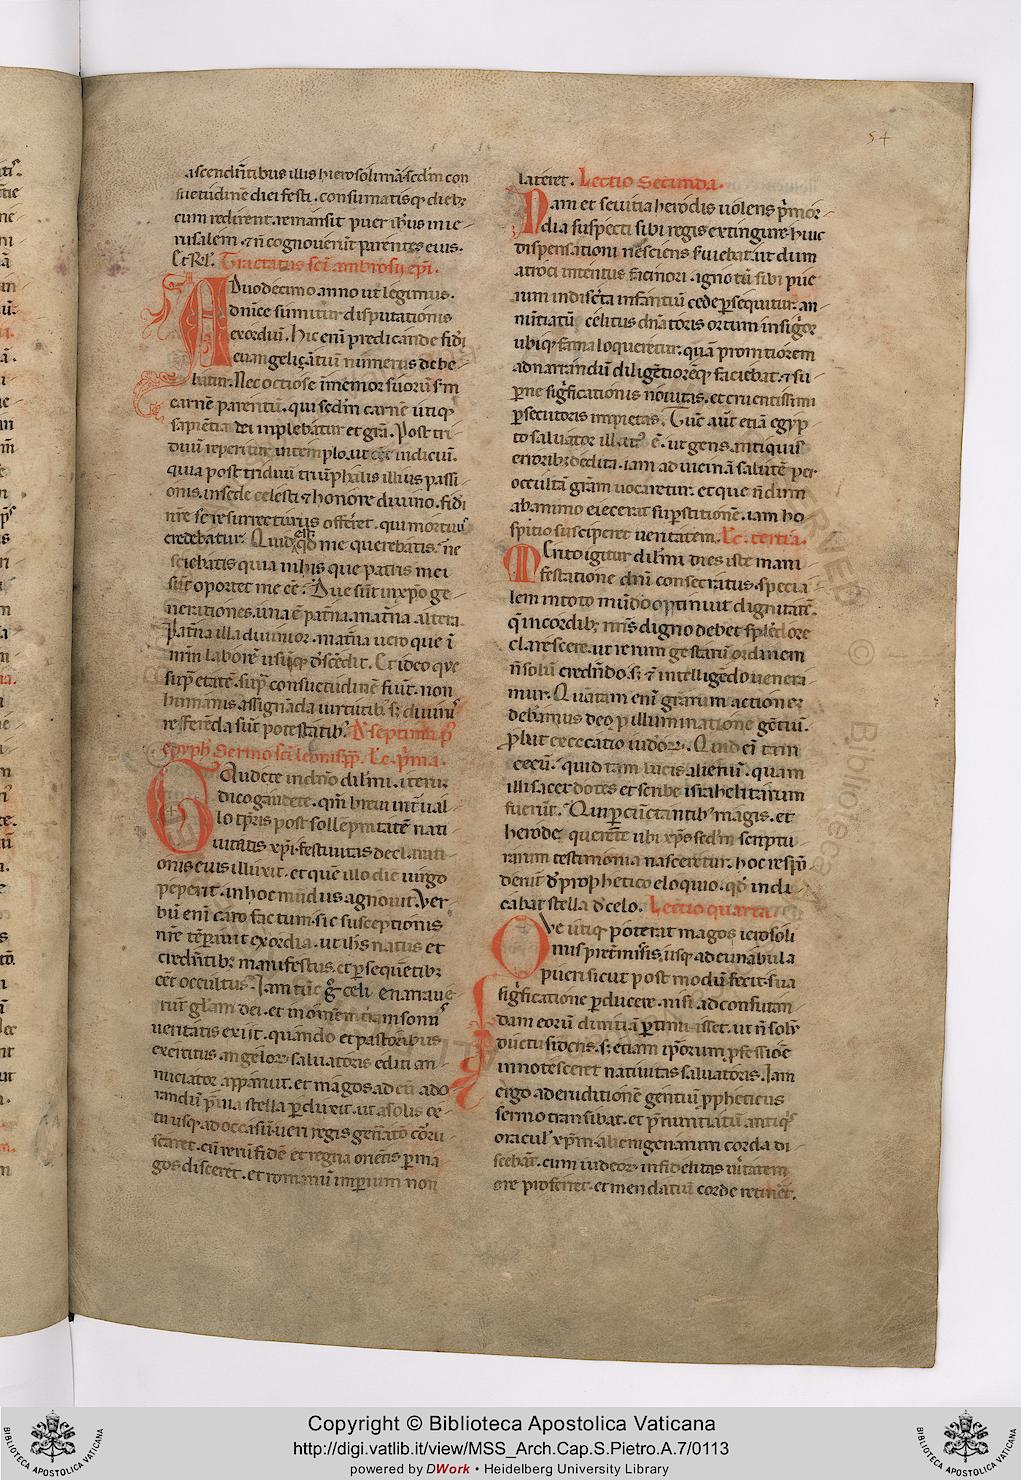 54
ascendẽtibus illis hierosolimã. scd̃m con
suetudinẽ diei festi. consumatisq; dieb;
cum redirent. remansit puer ih̃us in ie
rusalem. ⁊ ñ cognoverũt parentes eius.
Et Rl̃. Tractatus sc̃i ambrosij ep̃i.
A Duodecimo anno ut legimus.
dñice sumitur disputationis
exordiũ. Hic enĩ predicande fidei
euangelizãtiũ numerus debe
batur. Nec ociose inmemor suorũ s̃m
carnẽ parentũ. qui scd̃m carnẽ utiq;
sapiẽtia dei inplebatur et gr̃a. Post tri
duũ reperitur in templo. ut eẽt indiciũ.
quia post triduũ triũphalis illius passi
onis. in sede celesti ⁊ honore divino. fidei
nr̃e se resurrecturus offeret. qui mortuus
credebatur. Quid est qđ me querebatis. ne
sciebatis quia in his que patris mei
sũt oportet me eẽ. Due sũt in xp̃o ge
nerationes. una ẽ pat̃na. mat̃na altera.
Pat̃na illa divinior. mat̃na vero que ĩ
nr̃m laborẽ usũq; d̃scẽdit. Et ideo que
sup̃ etatẽ. sup̃ consuetudinẽ fiũt. non
humanis assignãda virtutib; s; divinis
referẽda sũt potestatib;. D. septima p̃
epyph̃. Sermo sc̃i leonis pp̃. Lc̃. p̃ma.
Gaudete in dño dil̃mi. iterũ
dico gaudete. qm̃ brevi int̃val
lo tp̃ris post sollẽpnitatẽ nati
vitatis xp̃i. festivitas declarati
onis eius illuxit. et que illo die virgo
peperit. in hoc mũdus agnovit. Ver
bũ enĩ caro factum. sic susceptionis
nr̃e tẽpavit exordia. ut ih̃s natus et
credẽtib; manifestus. et p̃sequẽtib;
eẽt occultus. Iam tũc g̃ celi enarrave
rũt gl̃am dei. et in om̃em terram sonus
veritatis exiit. quando et pastoribus
exercitus angelor; salvatoris editi an
nuciator apparuit. et magos ad eũ ado
randũ p̃via stella p̃duxit. ut a solis or
tu usq; ad occasũ. veri regis generatio coru
scaret. cũ rerũ fidẽ et regna oriẽtis p̃ ma
gos disceret. et romanũ imp̃ium non
lateret. Lectio Secunda.
Nam et sevitia herodis volens p̃mor
dia suspecti sibi regis extingure. huic
dispensationi nesciens fuviebat. ut dum
atroci intentus facinori. ignotũ sibi pue
rum indisc̃ta infantiũ cede p̃sequitur. an
nũtiatũ celitus dñatoris ortum insignior
ubiq; fama loqueretur. quã promtiorem
ad narrandũ diligẽtiorẽq; faciebat. ⁊ su
p̃ne sig̃ficationis novitas. et cruentissimi
p̃secutoris impietas. Tũc aũt etiã egyp
to salvator illatus ẽ. ut gens antiquis
errorib; dedita. iam ad vicinã salutẽ per
occultã gr̃am vocaretur. et que ñdum
ab animo eiecerat sup̃stitionẽ. iam ho
spitio susciperet veritatem. Lc̃. tertia.
Merito igitur dil̃mi dies iste mani
festatione dñi consecratus. specia
lem in toto mũdo optinuit dignitatẽ.
q̃ in cordib; nr̃is digno debet splẽdore
clarescere. ut rerum gestarũ ordinem
ñ solũ credẽdo. s; ⁊ intelligẽdo venere
mur. Quantam enĩ gratiarum actionem
debeamus deo p̃ illuminatione gẽtiũ.
p̃bat cececatio iudeor;. Quid eĩ tam
cecũ. quid tam lucis alienũ. quam
illi sacerdotes et scribe israhelitarum
fuerũt. Qui p̃cũctantib; magis. et
herode querẽte ubi xp̃s scd̃m scriptu
rarum testimonia nasceretur. hoc resp̃õ
derũt d̃ prophetico eloquio. qđ indi
cabat stella d̃ celo. Lectio quarta
Que utiq; poterat magos ierosoli
mis pret̃missis. usq; ad cunabula
pueri sicut post modũ fecit. sua
sig̃ficatione p̃ducere. nisi ad confutan
dam eorũ duritiã p̃tinuisset. ut ñ solum
ductu sideris. s; etiam ip̃orum p̃fessiõe
innotesceret nativitas salvatoris. Iam
ergo ad eruditionẽ gentiũ p̃pheticus
sermo transibat. et p̃nuntiatũ antiquis
oraculis xp̃m. alienigenarum corda di
scebãt. cum iudeor; infidelitas v̾itatem
ore proferret. et mendatiũ corde retinẽt.
Copyright © Biblioteca Apostolica Vaticana
http://digi.vatlib.it/view/MSS_Arch.Cap.S.Pietro.A.7/0113
powered by DWork • Heidelberg University Library
BIBLIOTECA APOSTOLICA VATICANA
BIBLIOTECA APOSTOLICA VATICANA